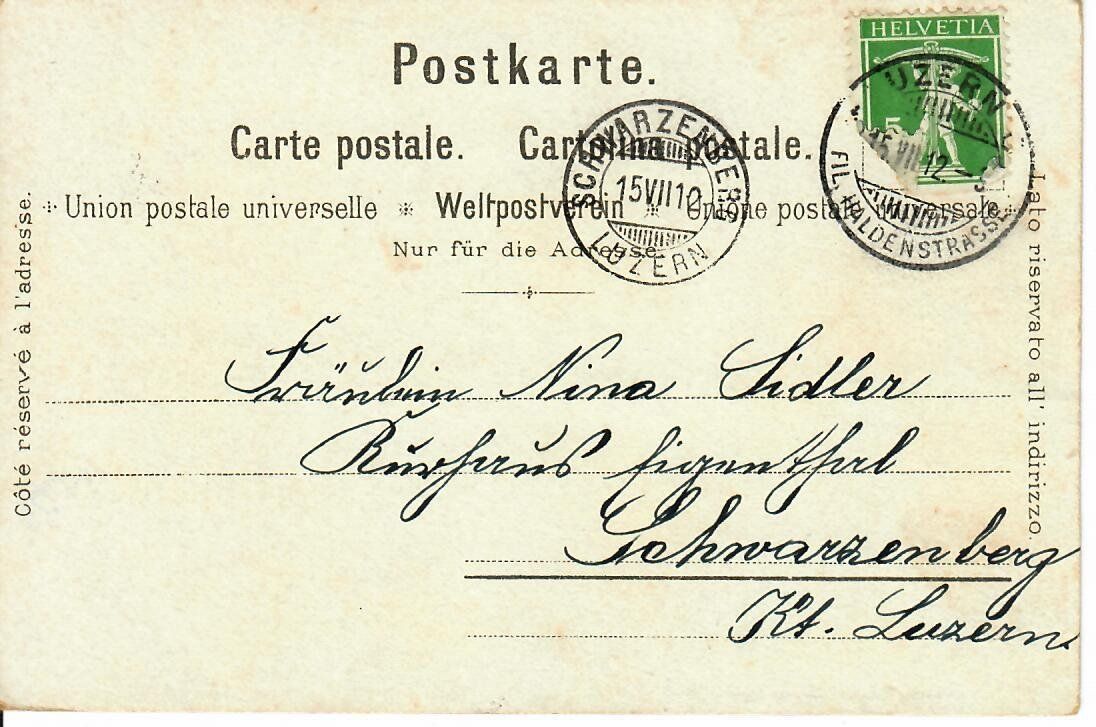 HELVETIA
5
Postkarte.
Carte postale. Cartolina postale.
Union postale universelle * Weltpostverein * Unione postale universale
Nur für die Adresse.
SCHWARZENBERG
15 VII 12
LUZERN
LUZERN
15.VII.12.-
FIL. HALDENSTRASSE
Côté réservé à l'adresse.
Lato riservato all' indirizzo.
Fräulein Nina Sidler
Kurhaus Eigenthal
Schwarzenberg
Kt. Luzern.